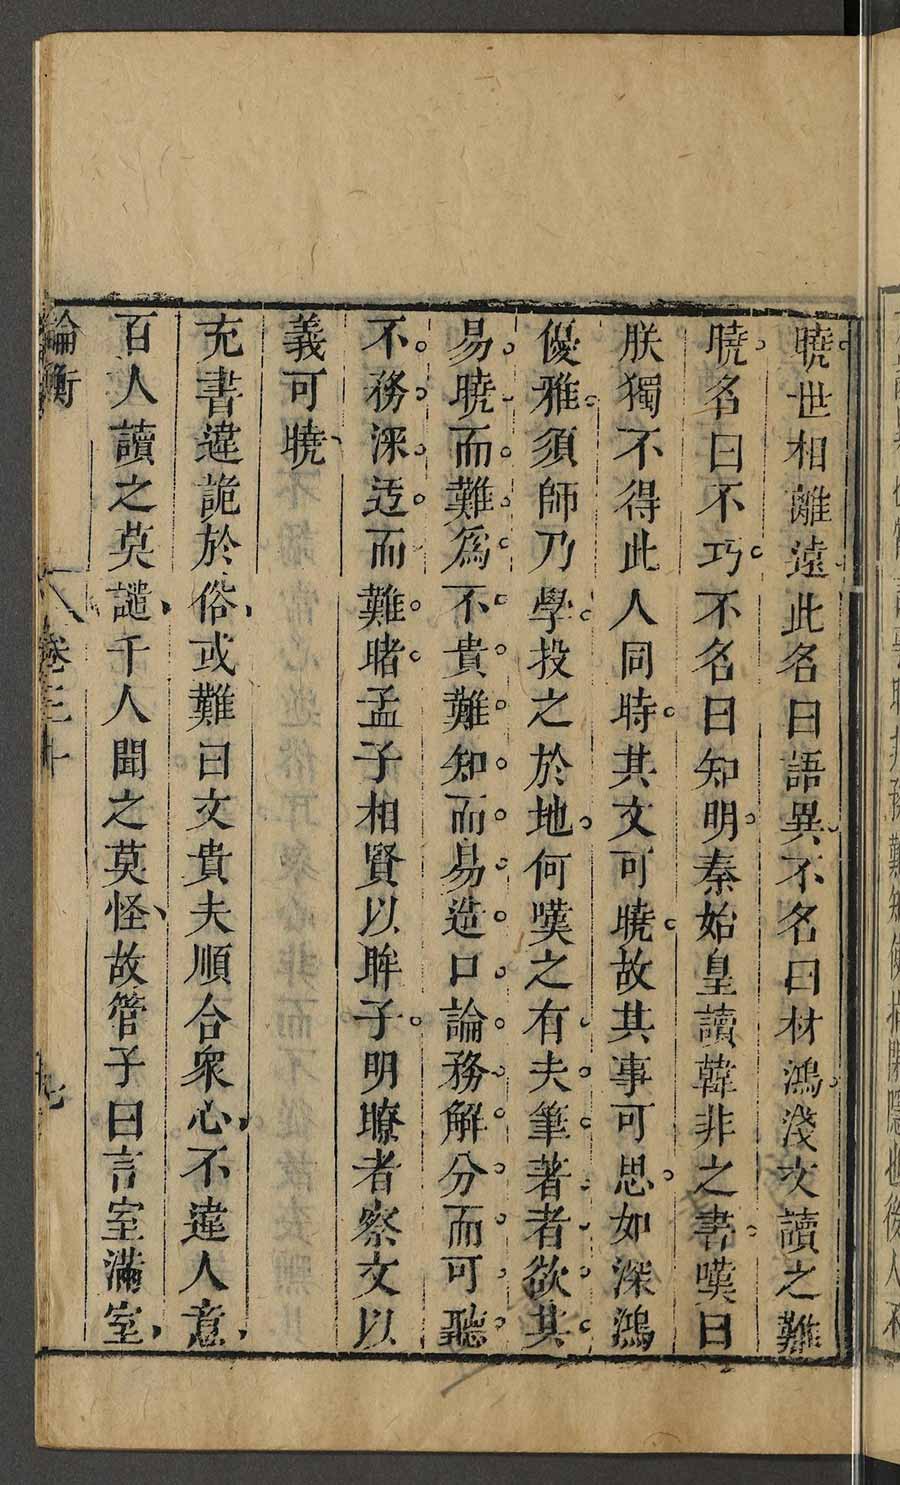 曉世相離遠此名曰語異不名曰材鴻淺文讀之難
曉名曰不巧不名曰知明秦始皇讀韓非之書嘆曰
朕獨不得此人同時其文可曉故其事可思如深鴻
優雅須師乃學投之於地何嘆之有夫筆著者欲其
易曉而難爲不貴難知而易造口論務解分而可聽
不務深迃而難睹孟子相賢以眸子明瞭者察文以
義可曉
充書違詭於俗或難曰文貴夫順合衆心不違人意
百人讀之莫譴千人聞之莫怪故管子曰言室滿室
論衡 卷三十 七